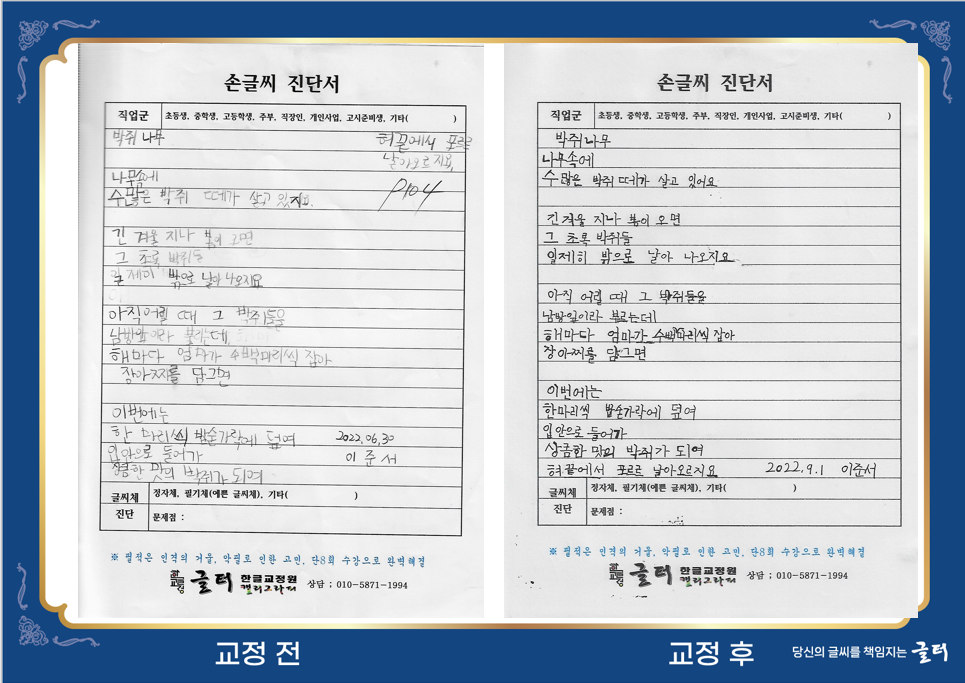 손글씨 진단서
직업군 초등생, 중학생, 고등학생, 주부, 직장인, 개인사업, 고시준비생, 기타( )
박쥐 나무
혀끝에서 포르르
날아오르지요,
나무속에
수많은 박쥐 떼가 살고 있지요.
P104
긴 겨울 지나 봄이 오면
그 초록 박쥐들
일제히 밖으로 날아 나오지요
아직 어릴 때 그 박쥐들을
남방잎이라 부르는데,
해마다 엄마가 수백마리씩 잡아
장아찌를 담그면
이번에는
한 마리씩 밥숟가락에 덮여
2022.06.30
입안으로 들어가
이준서
한 맛의 박쥐가 되여
글씨체 정자체, 필기체(예쁜 글씨체), 기타( )
진단 문제점 :
※ 필적은 인격의 거울, 악필로 인한 고민, 단8회 수강으로 완벽해결
한글교정 글터 한글교정원 캘리그라피 상담 ; 010-5871-1994
교정 전
손글씨 진단서
직업군 초등생, 중학생, 고등학생, 주부, 직장인, 개인사업, 고시준비생, 기타( )
박쥐나무
나무속에
수많은 박쥐 떼가 살고 있어요
긴겨울 지나 봄이 오면
그 초록 박쥐들
일제히 밖으로 날아 나오지요
아직 어릴 때 그 박쥐들을
남방잎이라 부르는데
해마다 엄마가 수백마리씩 잡아
장아찌를 담그면
이번에는
한마리씩 밥숟가락에 덮여
입안으로 들어가
상큼한 맛의 박쥐가 되여
혀끝에서 포르르 날아오르지요 2022.9.1 이준서
글씨체 정자체, 필기체(예쁜 글씨체), 기타( )
진단 문제점 :
※ 필적은 인격의 거울, 악필로 인한 고민, 단8회 수강으로 완벽해결
한글교정 글터 한글교정원 캘리그라피 상담 ; 010-5871-1994
교정 후
당신의 글씨를 책임지는 글터